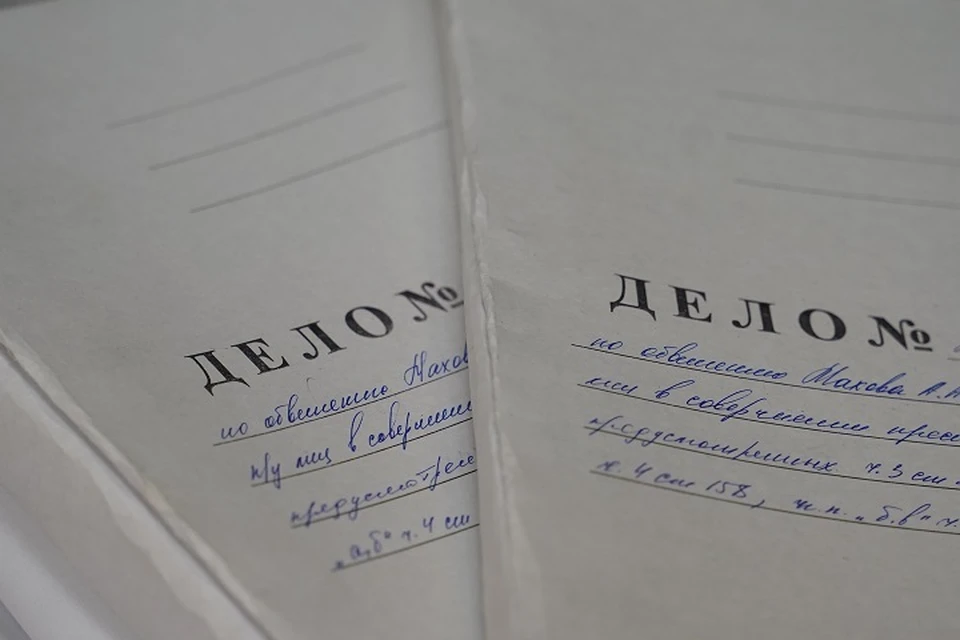 ДЕЛО №
по обвинению Махов
п/у лиц в совершении
предусмотрен
"а,б" ч. 4 ст
ДЕЛО №
по обвинению Махова А.А
лиц в совершении прес
предусмотренных ч. 3 ст.
ч. 4 ст 158, п.п. "б,в" ч.